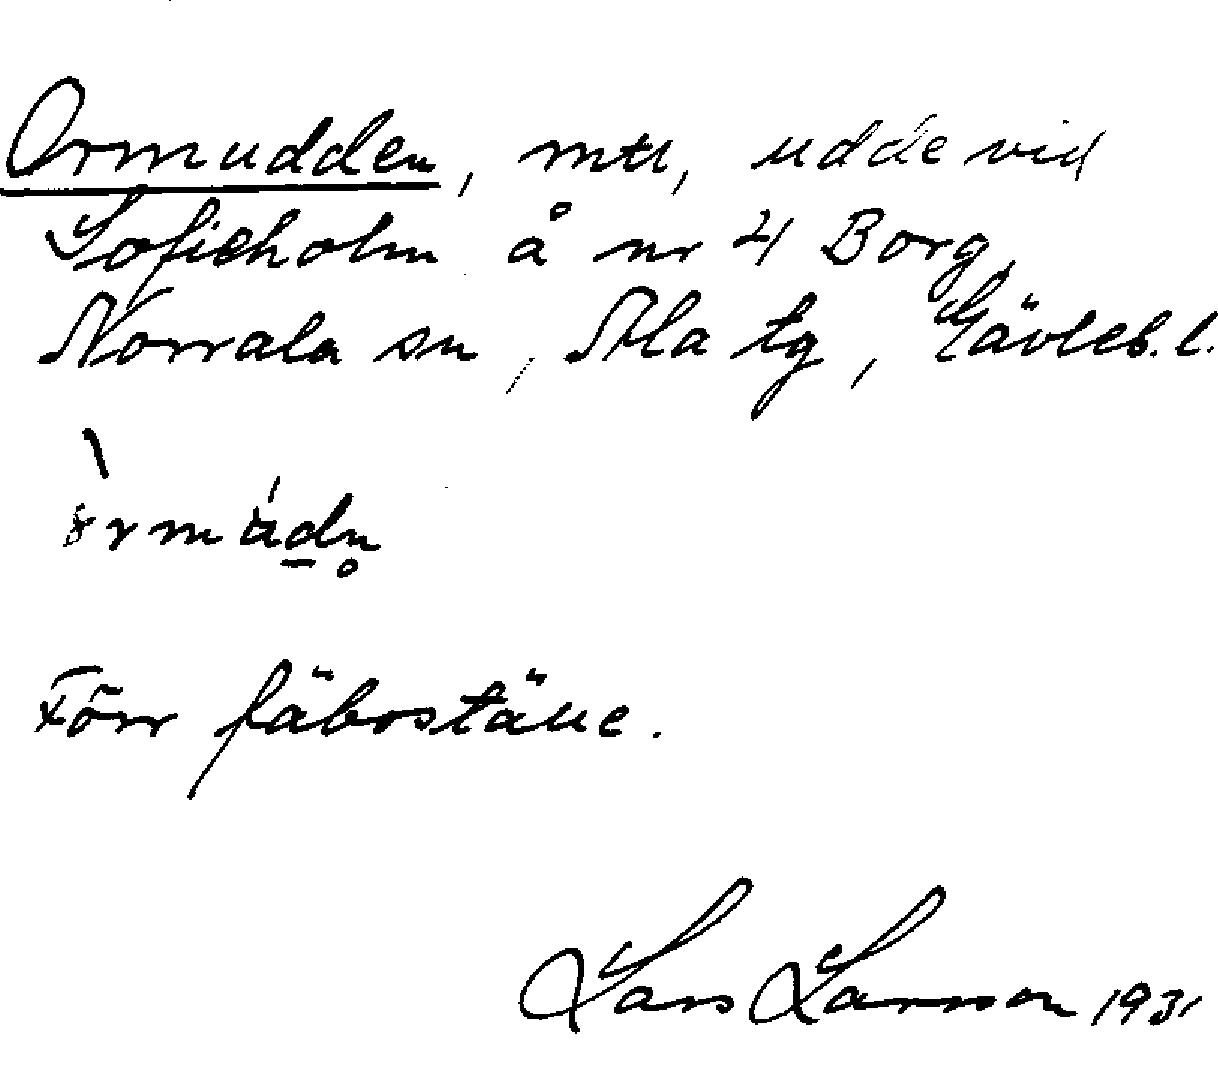 Ormudden, mtl, udde vid
Sofieholm å nr 4 Borg,
Norrala sn, Ala tg, Gävleb. l.
Förr fäboställe.
Lars Larsson 1931